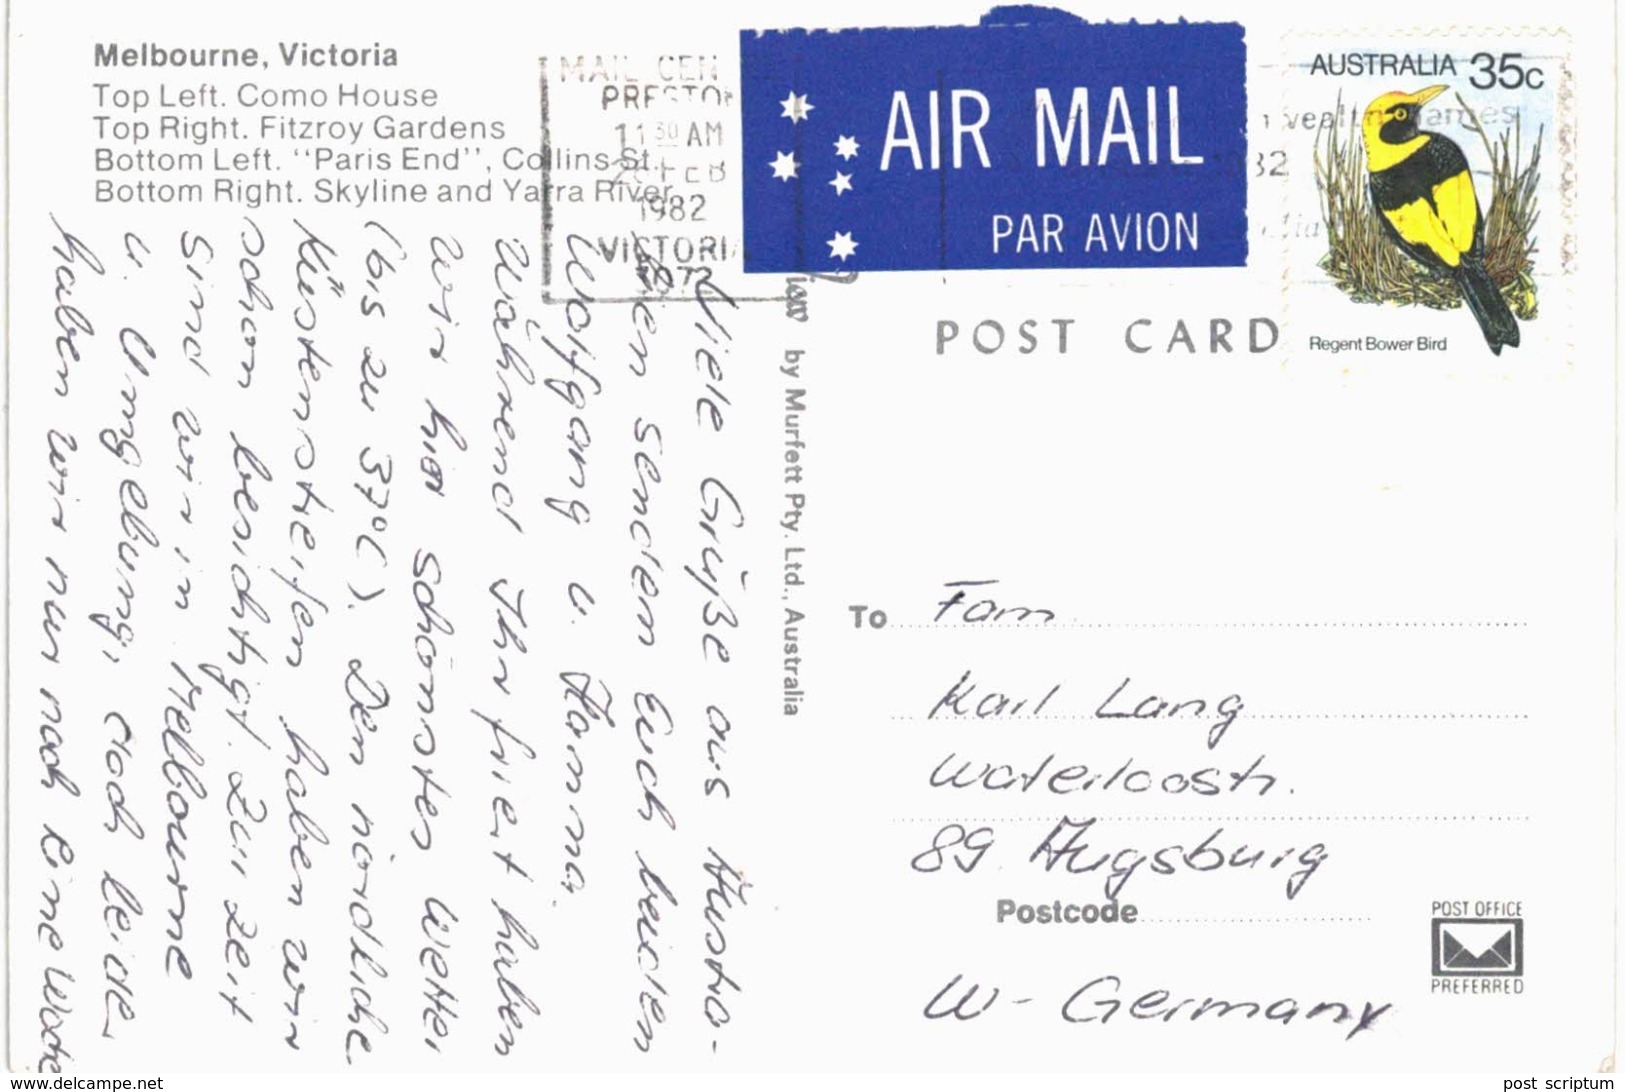 Melbourne, Victoria
Top Left. Como House
Top Right. Fitzroy Gardens
Bottom Left. "Paris End", Collins St.
Bottom Right. Skyline and Yarra River
MAIL CEN
PRESTON
11 30 AM
FEB
1982
VICTORIA
AIR MAIL
PAR AVION
AUSTRALIA 35c
Regent Bower Bird
POST CARD
by Murfett Pty. Ltd., Australia
Viele Grüße aus Austra-
lien senden Euch beiden
Wolfgang u. Hanna.
Während Ihr friert haben
wir hier schönstes Wetter
(bis zu 37°C). Den nördliche
Küstenstreifen haben wir
schon besichtigt. Zur Zeit
sind wir in Melbourne
u. Umgebung, doch leider
haben wir nur noch eine Woche
To Fam
Karl Lang
Waterloostr.
89 Augsburg
Postcode
W-Germany
POST OFFICE
PREFERRED
www.delcampe.net
post scriptum